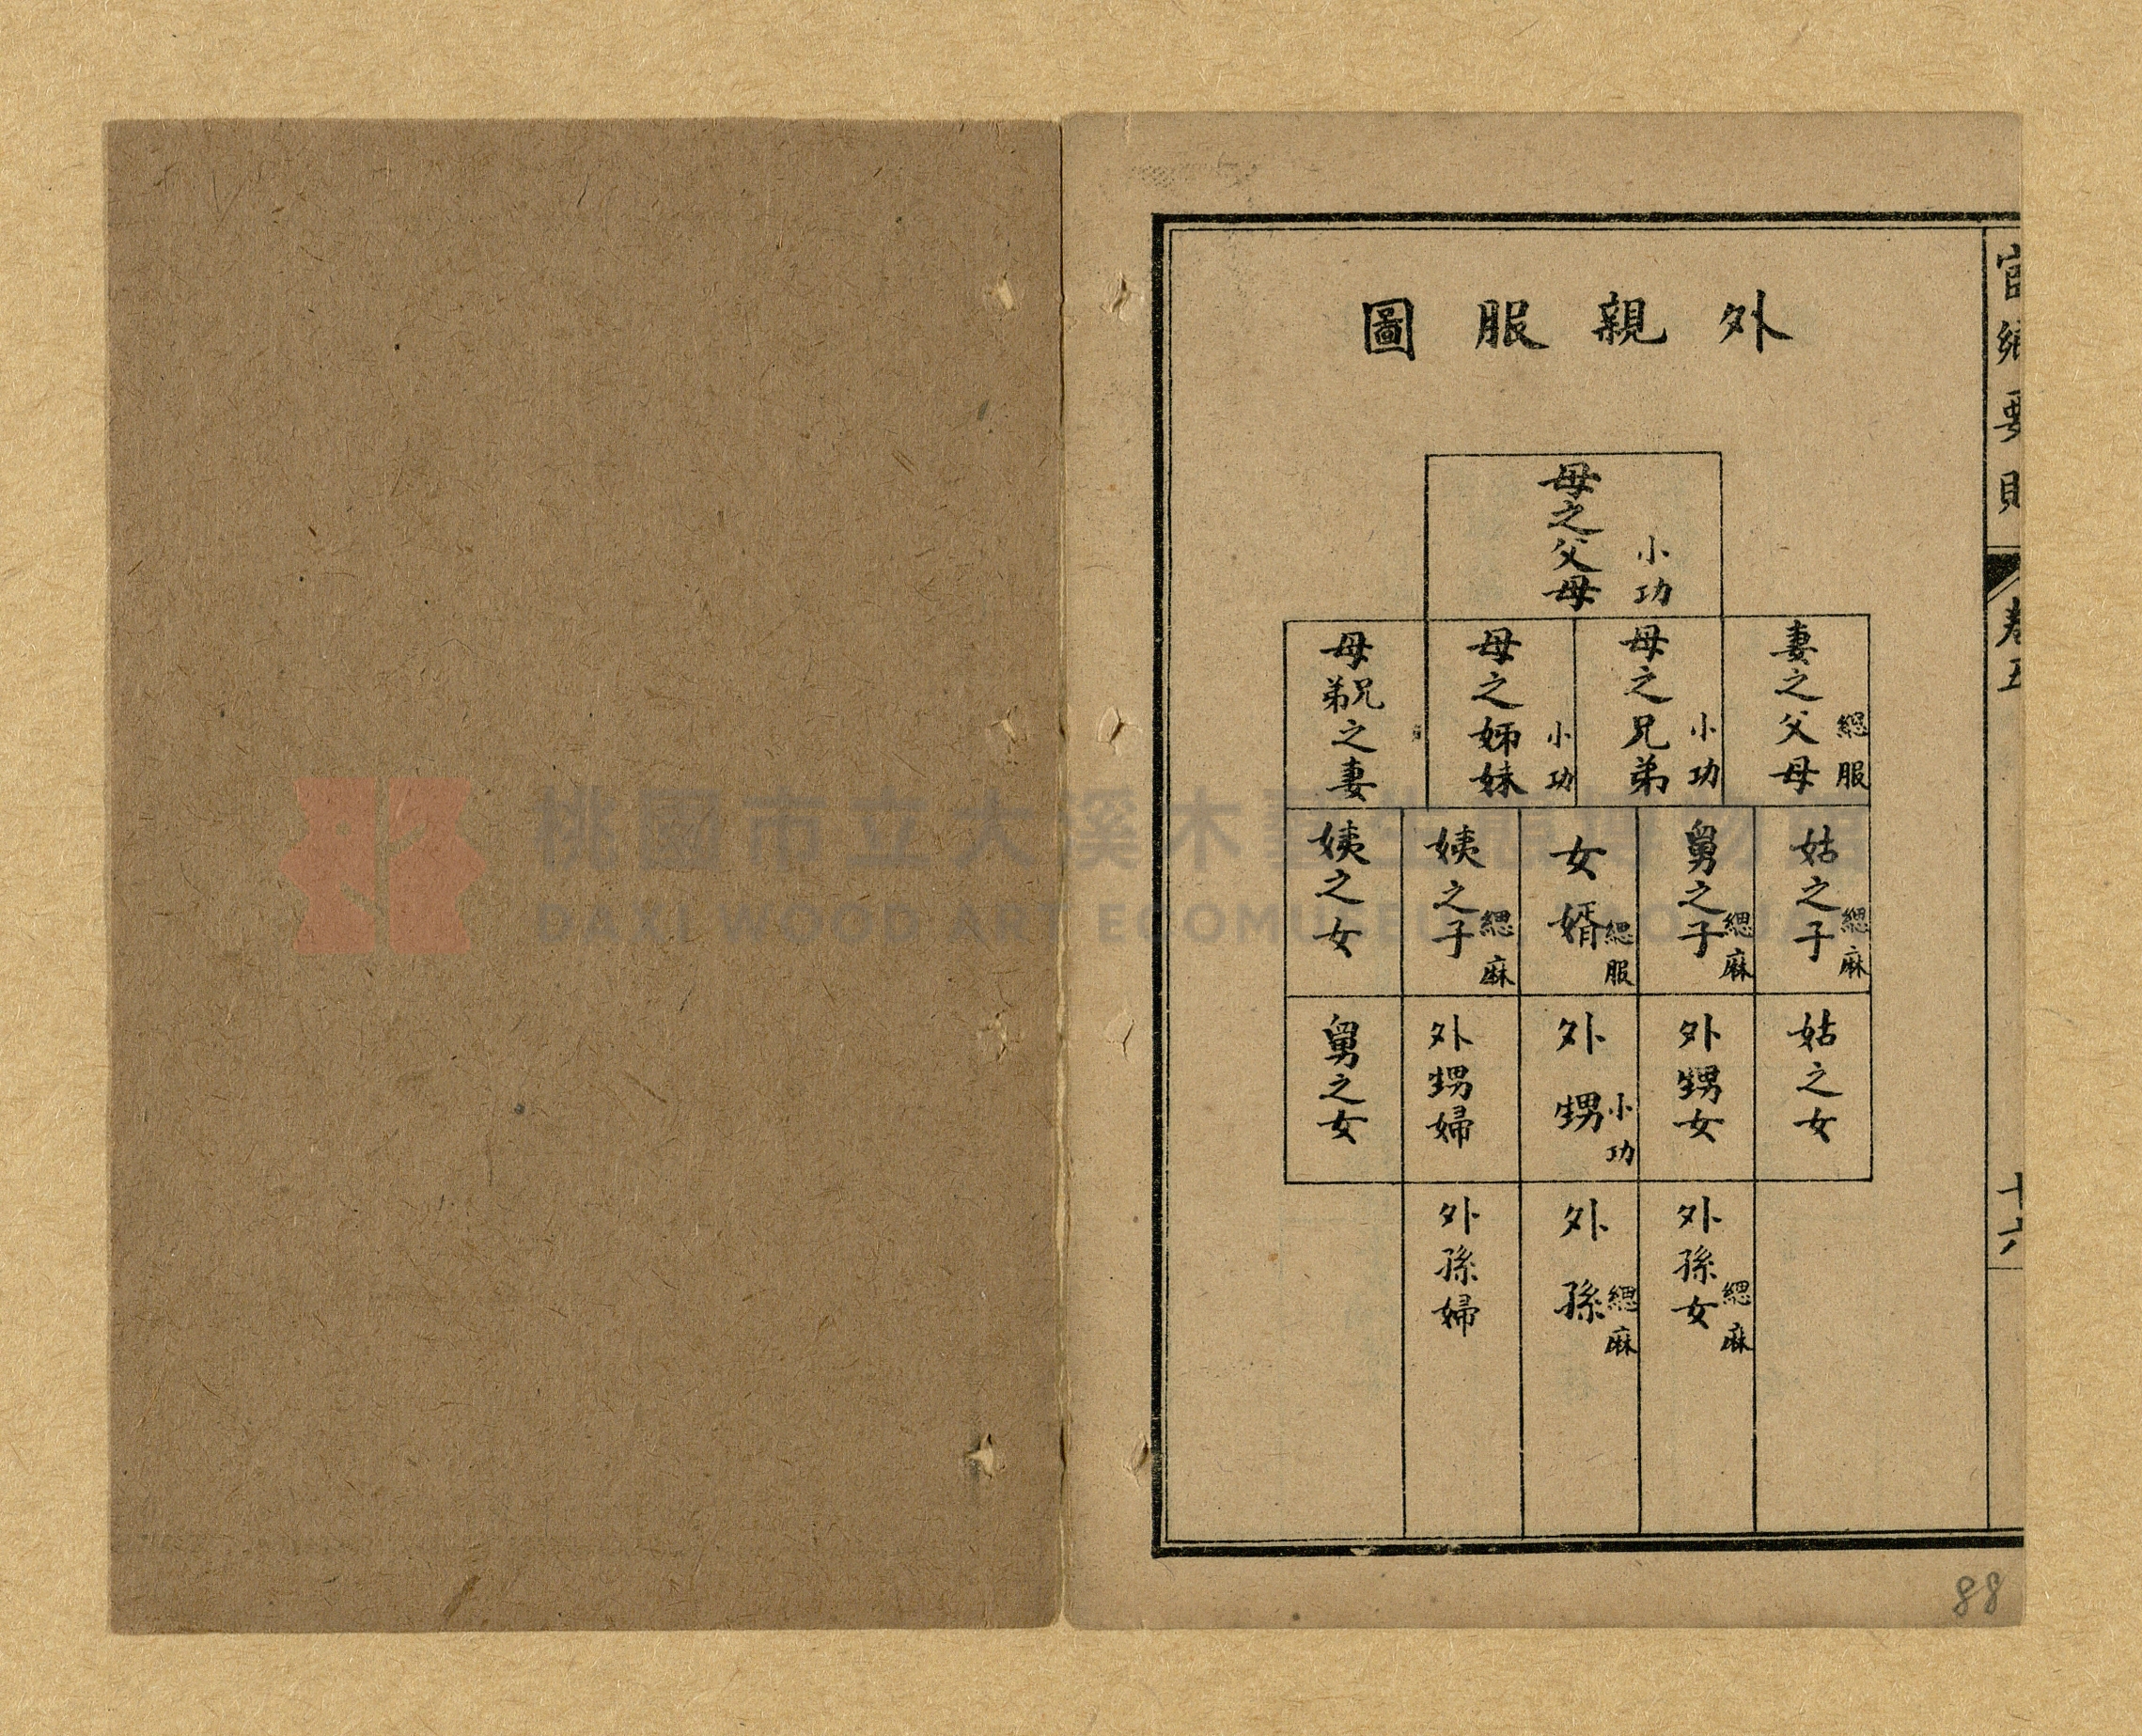 外親服圖
母之父母 小功
妻之父母 緦服
母之兄弟 小功
母之姊妹 小功
母兄弟之妻
姑之子 緦麻
舅之子 緦麻
女婿 緦服
姨之子 緦麻
姨之女
姑之女
外甥女
外甥 小功
外甥婦
舅之女
外孫女 緦麻
外孫 緦麻
外孫婦
要則
卷五
十六
88
桃園市立大溪木藝生態博物館
DAXI WOOD ART ECOMUSEUM, TAOYUAN